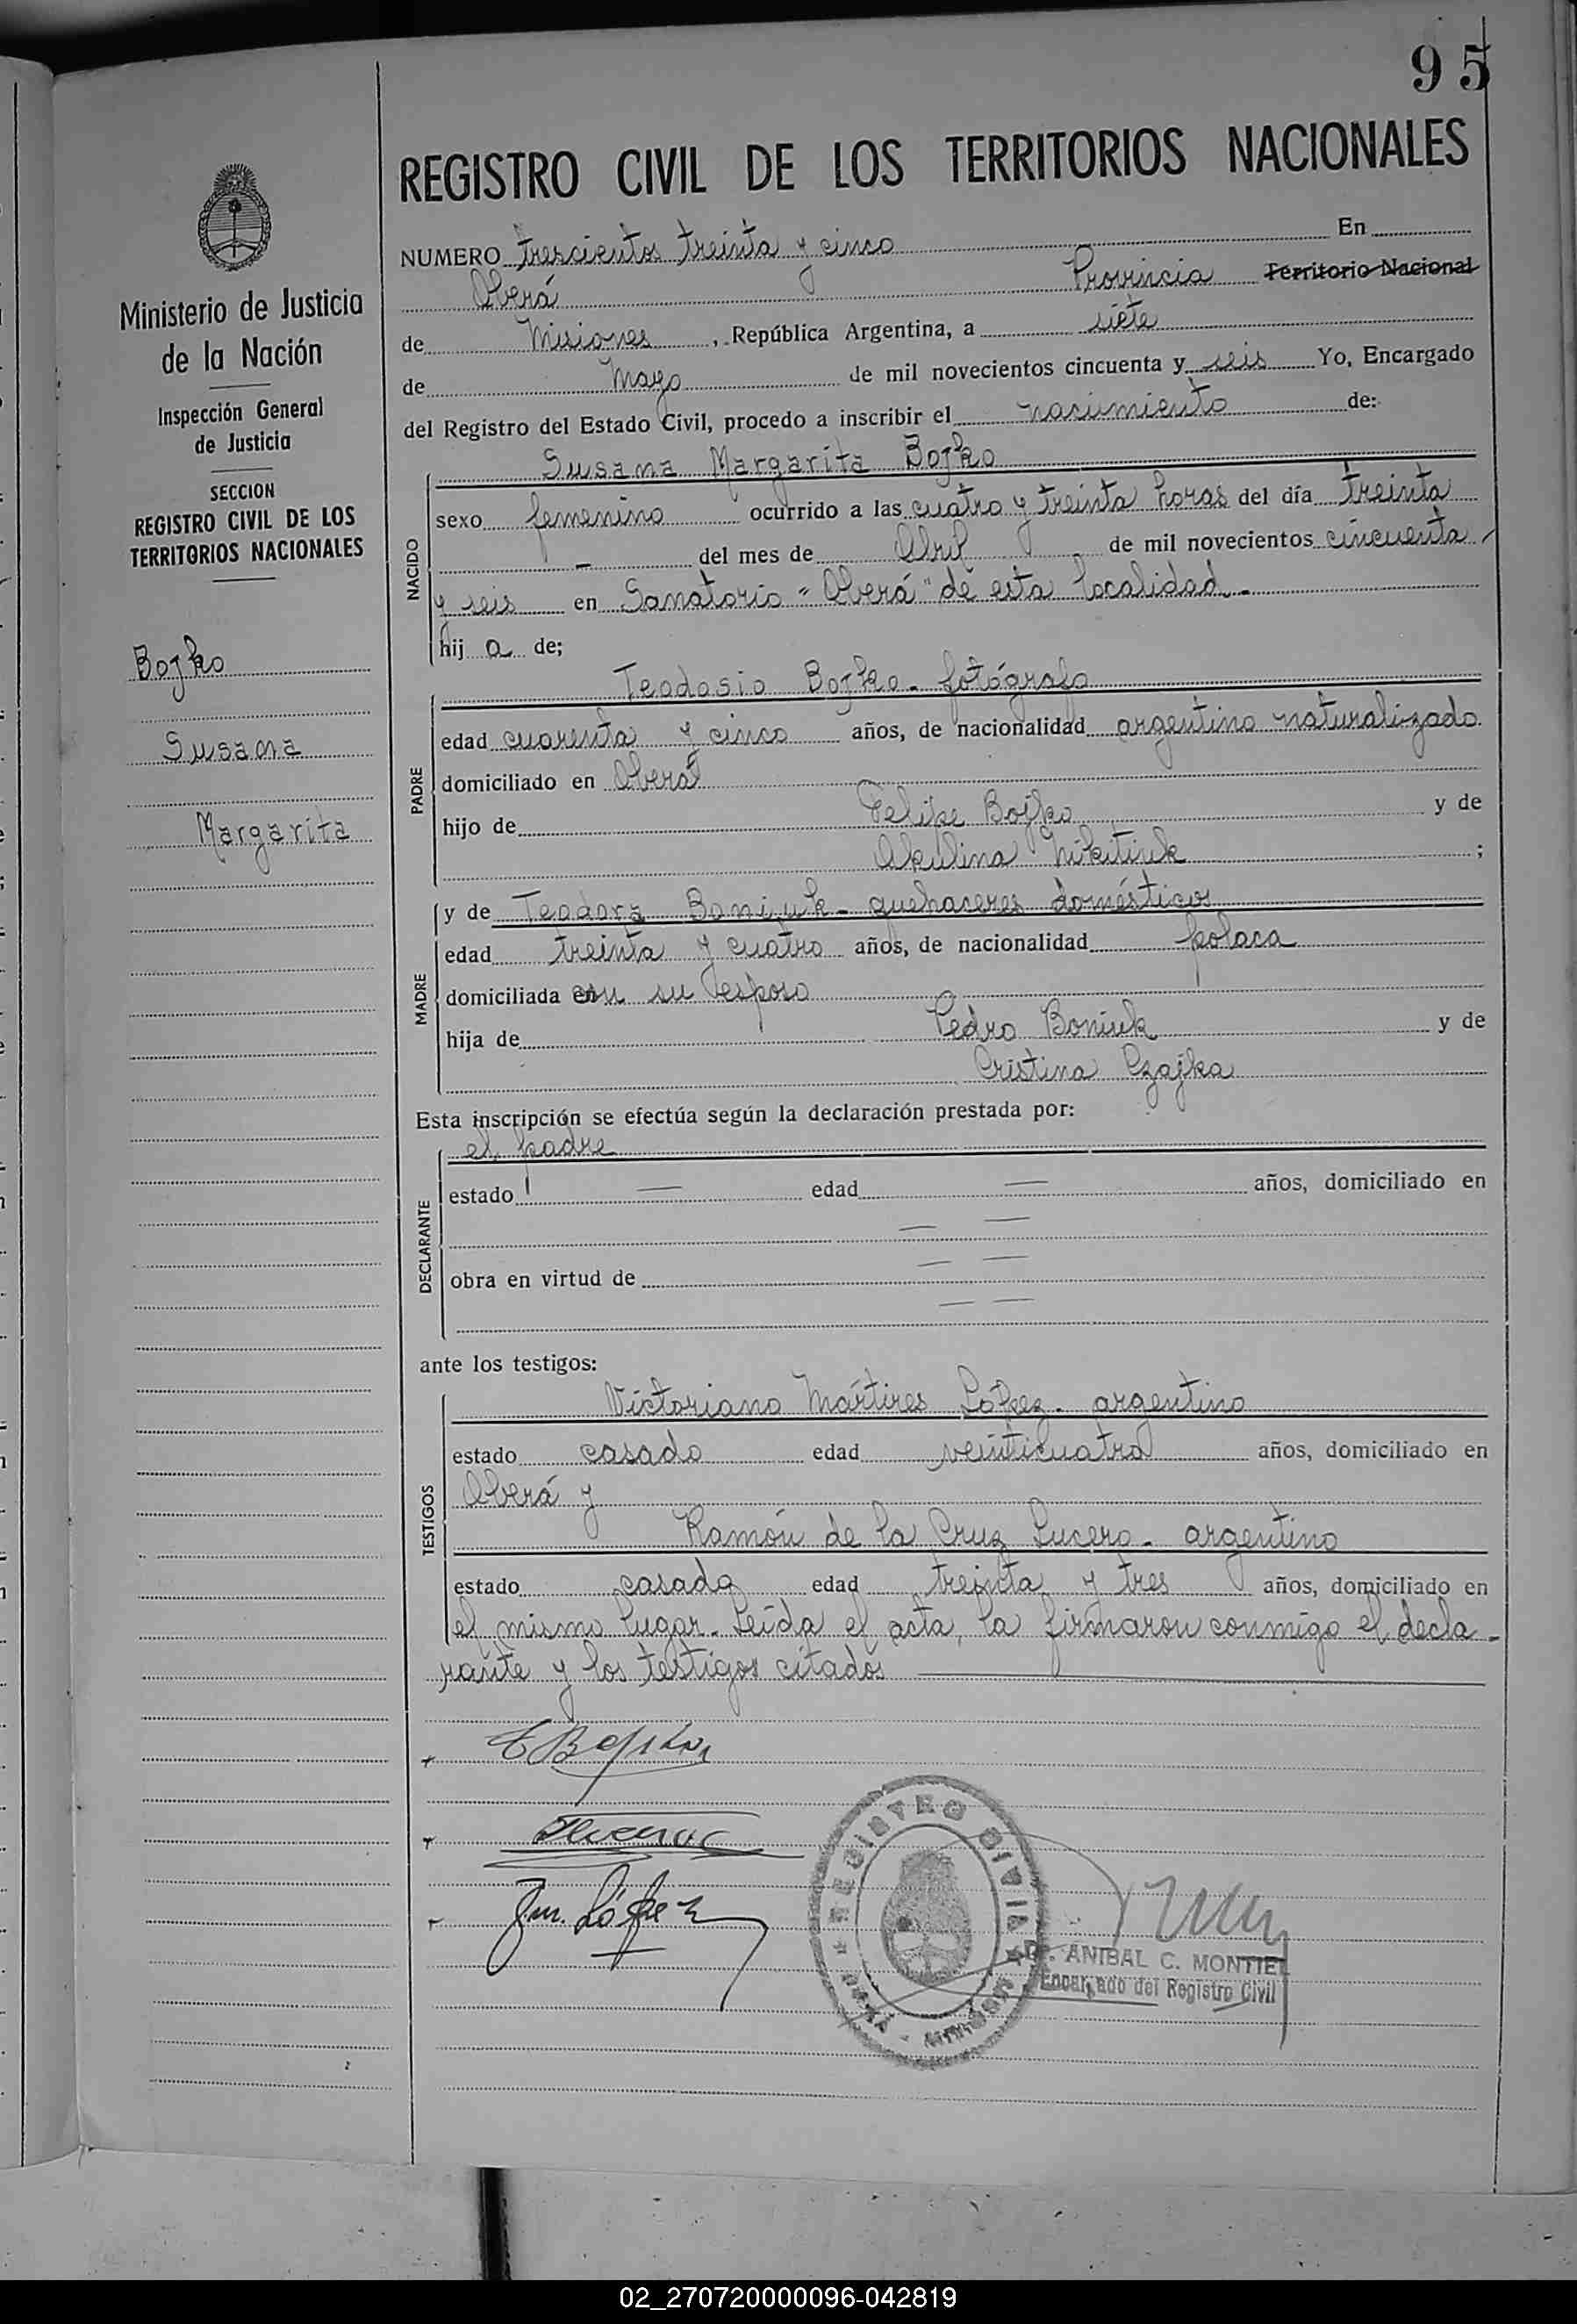 95
REGISTRO CIVIL DE LOS TERRITORIOS NACIONALES
Ministerio de Justicia
de la Nación
Inspección General
de Justicia
SECCION
REGISTRO CIVIL DE LOS
TERRITORIOS NACIONALES
Bojko
Susana
Margarita
NUMERO trescientos treinta y cinco En
Oberá Provincia Territorio Nacional
de Misiones, República Argentina, a siete
de Mayo de mil novecientos cincuenta y seis Yo, Encargado
del Registro del Estado Civil, procedo a inscribir el nacimiento de:
NACIDO
Susana Margarita Bojko
sexo femenino ocurrido a las cuatro y treinta horas del día treinta
— del mes de Abril de mil novecientos cincuenta
y seis en Sanatorio "Oberá" de esta localidad.-
hij a de;
PADRE
Teodosio Bojko - fotógrafo
edad cuarenta y cinco años, de nacionalidad argentino naturalizado
domiciliado en Oberá
hijo de Felipe Bojko y de
Akulina Nikitiuk ;
MADRE
y de Teodora Boniuk - quehaceres domésticos
edad treinta y cuatro años, de nacionalidad polaca
domiciliada en su esposo
hija de Pedro Boniuk y de
Cristina Czajka
Esta inscripción se efectúa según la declaración prestada por:
DECLARANTE
el padre
estado — edad — años, domiciliado en
— —
obra en virtud de — —
— —
ante los testigos:
TESTIGOS
Victoriano Mártires López - argentino
estado casado edad veinticuatro años, domiciliado en
Oberá y
Ramón de la Cruz Lucero - argentino
estado casado edad treinta y tres años, domiciliado en
el mismo lugar. Leída el acta, la firmaron conmigo el decla-
rante y los testigos citados
T Bojko
Lucero
Vm. López
REGISTRO CIVIL
OBERÁ - MISIONES
Dr. ANIBAL C. MONTIEL
Encargado del Registro Civil
02_270720000096-042819